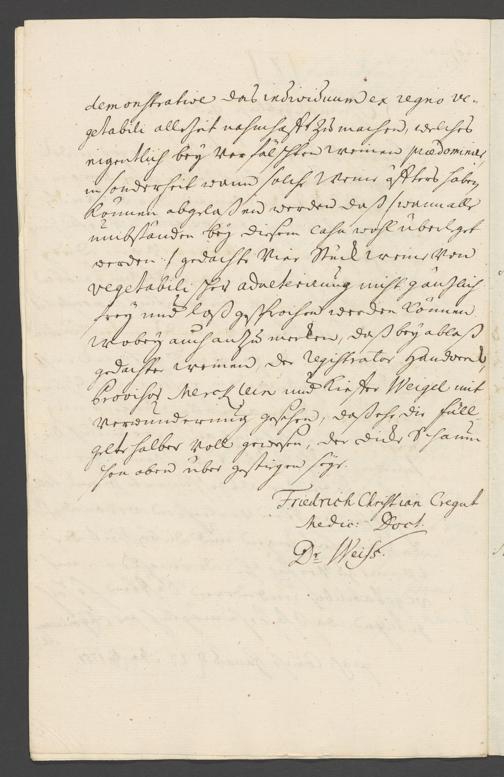 demonstrative das individuum ex regno ve-
getabili allezeit nahmhafft zu machen, welches
eigentlich bey verfälschten weinen prædominire,
insonderheit wann solche Weine öffters haben
können abgelaßen werden daß /: wann alle
umbständen bey diesem casu wohl überleget
werden :/ gedachte Vier Stück weins von
vegetabilischer adulterirung nicht gäntzlich
frey und loß gesprochen werden können
wobey auch anzumercken, daß bey ablaß
gedachter weinen, der Registrator Handwerck,
Provisor Mercklein und Kieffer Weigel mit
verwunderung gesehen, daß ehe die füll-
gelte halber voll gewesen, der dicke Schaum
schon oben über gestiegen seye.
Friedrich Christian Cregut
Medic: Doct.
Dr Weiss.